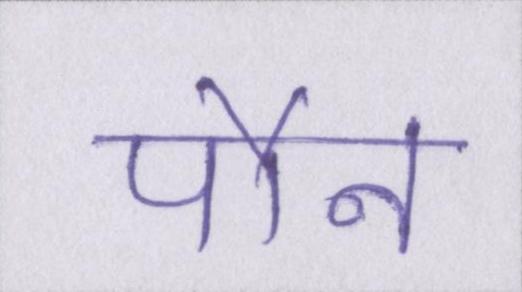 पौन